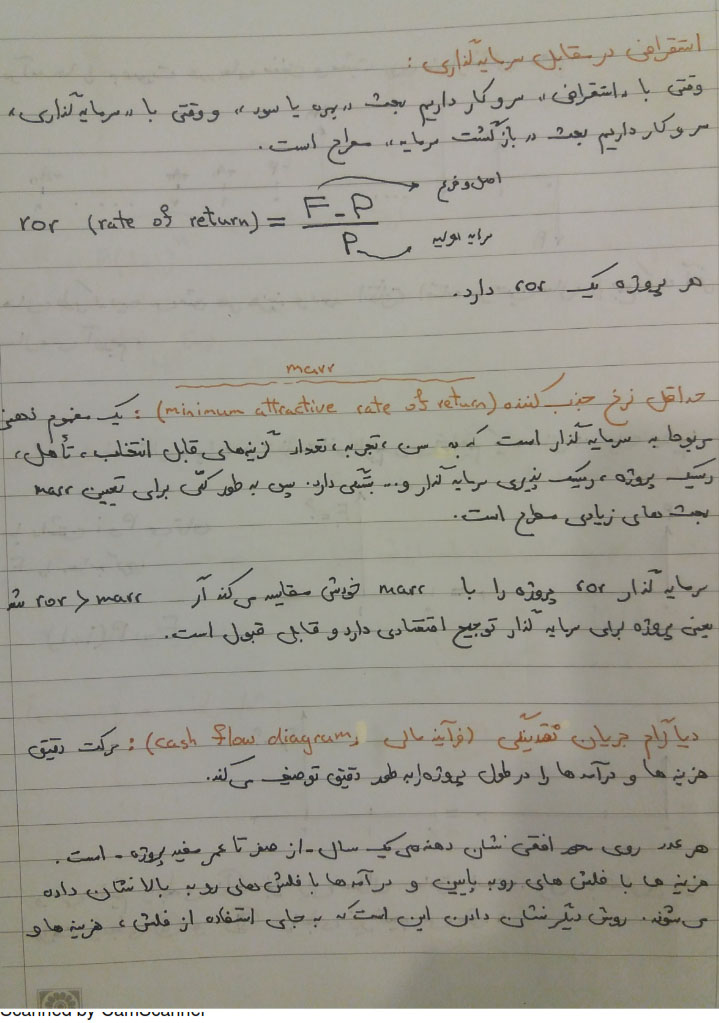 استقراض در مقابل سرمایه‌گذاری:
وقتی با «استقراض» سر و کار داریم بحث «بهره یا سود» و وقتی با «سرمایه‌گذاری»
سر و کار داریم بحث «بازگشت سرمایه» مطرح است.
اصل و فرع
ror (rate of return) = F-P / P
سرمایه اولیه
هر پروژه یک ror دارد.
marr
حداقل نرخ جذب کننده (minimum attractive rate of return): یک مفهوم ذهنی
مربوط به سرمایه‌گذار است که به سن، تجربه، تعداد گزینه‌های قابل انتخاب، تأهل،
ریسک پروژه، ریسک پذیری سرمایه‌گذار و... بستگی دارد. پس به طور کلی برای تعیین marr
بحث های زیادی مطرح است.
سرمایه‌گذار ror پروژه را با marr خودش مقایسه می‌کند اگر ror > marr شد
یعنی پروژه برای سرمایه‌گذار توجیح اقتصادی دارد و قابل قبول است.
دیاگرام جریان نقدینگی (فرآیند مالی، cash flow diagram): حرکت دقیق
هزینه ها و درآمد ها را در طول پروژه به طور دقیق توصیف می‌کند.
هر عدد روی محور افقی نشان دهنده‌ی یک سال - از صفر تا عمر مفید پروژه - است.
هزینه ها با فلش های رو به پایین و درآمدها با فلش‌های رو به بالا نشان داده
می‌شوند. روش دیگر نشان دادن این است که به جای استفاده از فلش، هزینه ها و
Scanned by CamScanner